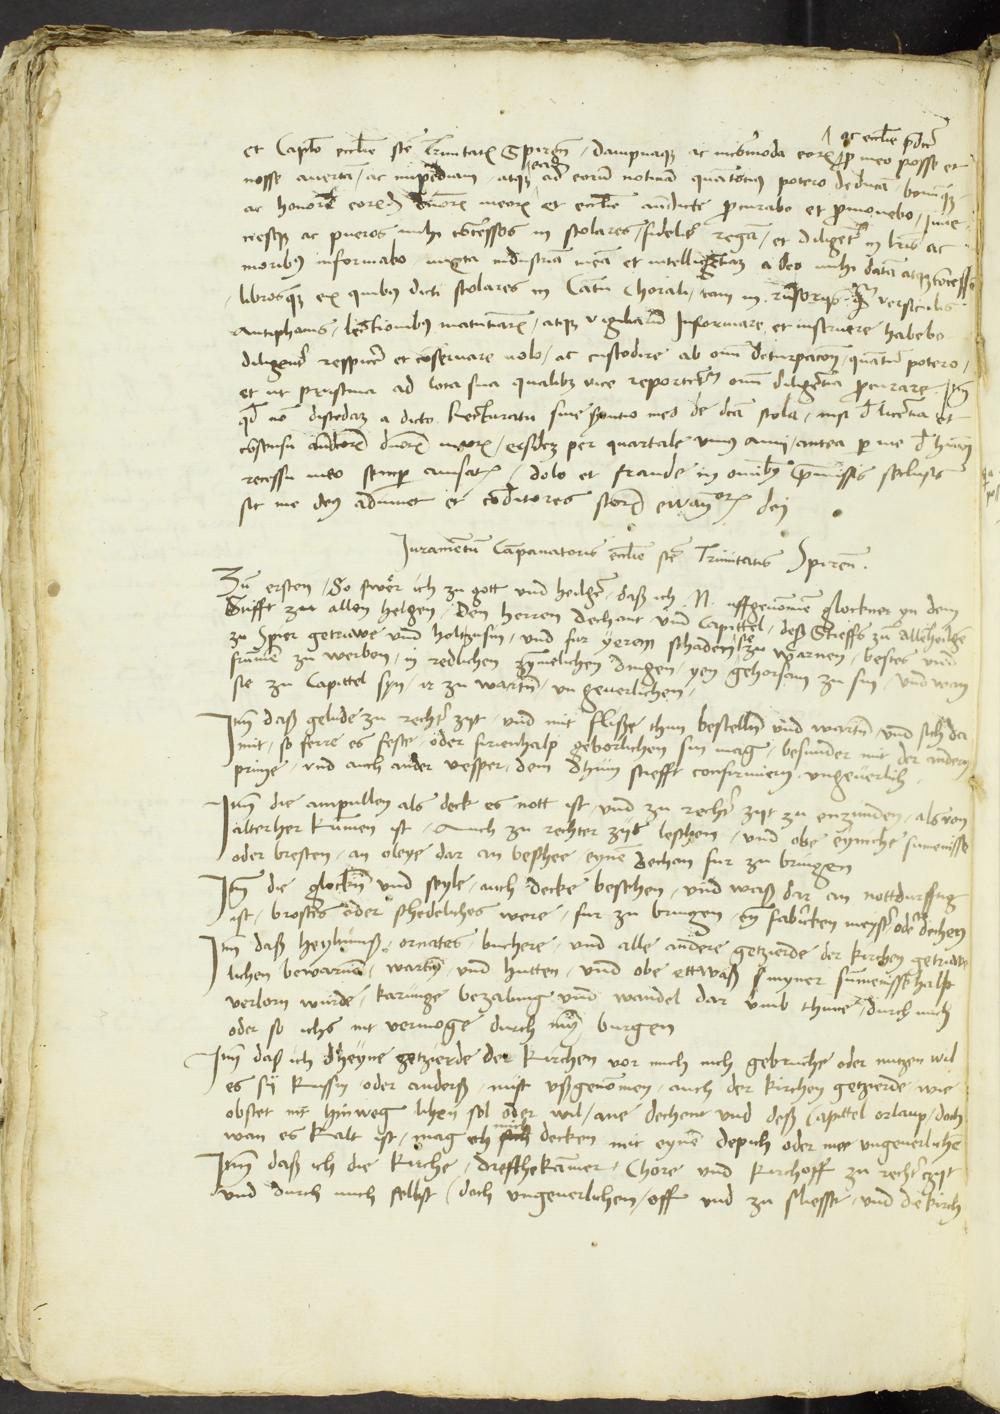 ac ecclie pdcte
et Caplo ecclie scte Trinitatis Spiren, dampnaque ac incomoda eorum pro meo posse et
nosse auertam, ac impediam, atque ea ad eorum notitiam quantotius potero deducam, bonumque
ac honorem eorundem dominorum meorum et ecclie antedicte procurabo et promouebo, Iuue
nesque ac pueros mihi concessos in scolares, fideliter regam, et diligenter in literis ac
moribus informabo iuxta industriam meam et intelligentiam a deo mihi datam atque concessam
librosque ex quibus dicti scolares in Cantu Chorali, tam in responsorijs, versiculis
Antiphonis, lectionibus matutinarum, atque vigiliarum Informare et instruere habebo
diligenter respicere et conseruare volo, ac custodire ab omni deturpacione, quantum potero,
et ut pristina ad loca sua qualibet vice reportentur omni diligentia procurare. Item
quod non discedam a dicto Rectoratu siue seruitio meo de dicta scola, nisi de licentia et
consensu antedictorum dominorum meorum, eisdem per quartale vnius anni, antea per me de huiusmodi
recessu meo semper auisatis, dolo et fraude in omnibus premissis seclusis
sic me deus adiuuet et conditores sanctorum ewangeliorum dei
Juramentum Campanatoris ecclie scte Trinitatis Spiren.
Zum ersten, So swer ich zu gott vnd heilgen, daß ich N. uffgenommen glockner yn dem
Stifft zu allen helgen, den herren Dechant vnd Capittel, deß Stieffs zu allenheilgen
zu Spier getruwe vnd holt zusin, vnd fur yerem schaden sie zu warnen, bestes vnd
frummen zu werben, in redlichen zymelichen dingen, yen gehorsam zu sin, vnd wan
sie zu Capittel syn, ir zu warten, vngeuerlichen,
Item daß gelude zu rechter zyt, vnd mit fließe thun bestellen vnd warten vnd sich da
mit, so ferre es feste, oder firienhalp geborlichen sin mag, besunder mit der andern
prime, vnd auch ander vesper, dem dhum stiefft confirmiern vngeuerlich.
Item die ampullen als deck es nott ist, vnd zu rechter zyt zu enzunden, als von
alterher kummen ist, Auch zu rechter zyt leschen, vnd obe eyniche sumenisse
oder bresten, an oleye dar an beschee, eynem dechan fur zu bringen
Item die glocken vnd seyle, auch decke besehen, vnd waß dar an nottdurfftig
ist, brostes oder schedeliches were, fur zu bringen, eym fabricken meyster oder dechen
Item daß heyltumß, ornates, buchere, vnd alle andere getzierde der kirchen getruwe
lichen bewarnn, warten, vnd hutten, vnd obe ettwaß smyner sumenisse halp
verlorn wurde, karunge bezalung vnd wandel dar vmb thune, durch mich
oder so ichs nit vermoge durch myn burgen
Item daß ich dheyne getzierde der kirchen vor mich nich gebruche oder nutzen wil
es sy kussen, oder anderß, nust vßgenomen, auch der kirchen getzierde, wie
obstet nit hinweg lihen sol oder wil, ane dechent vnd deß Capittel orlaup, doch
wan es kalt ist, mag ich mich decken mit eynem depich oder me vngeuerliche
Item daß ich die kirche, dreskamer, Chore vnd kirchoff zu rechter zyt
vnd durch mich selbst (doch vngeuerlichen, off vnd zu sliesse, vnd die kirch